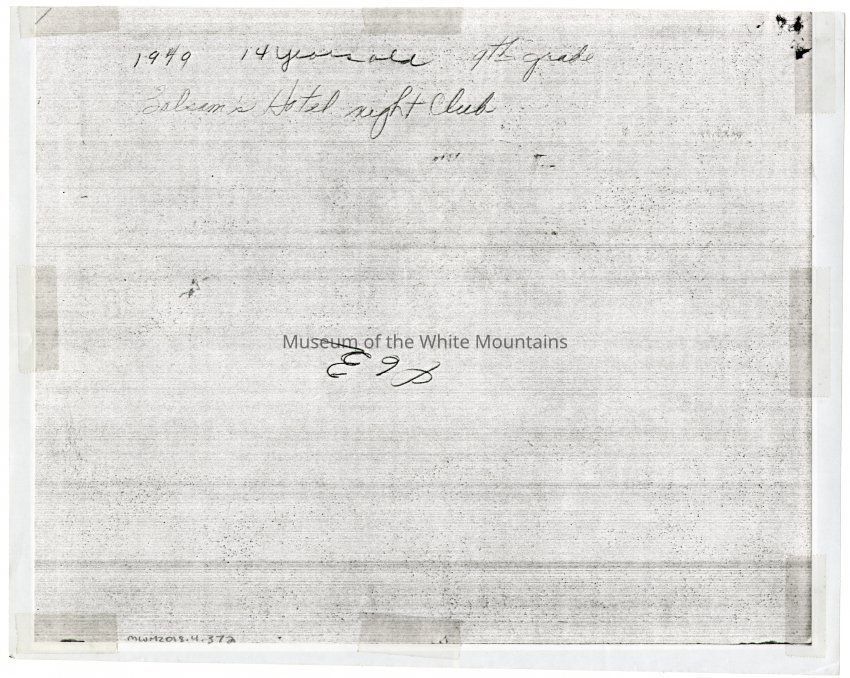 1949 14 years old 9th grade
Folsom's Hotel night Club
Museum of the White Mountains
MWM2018.4.372